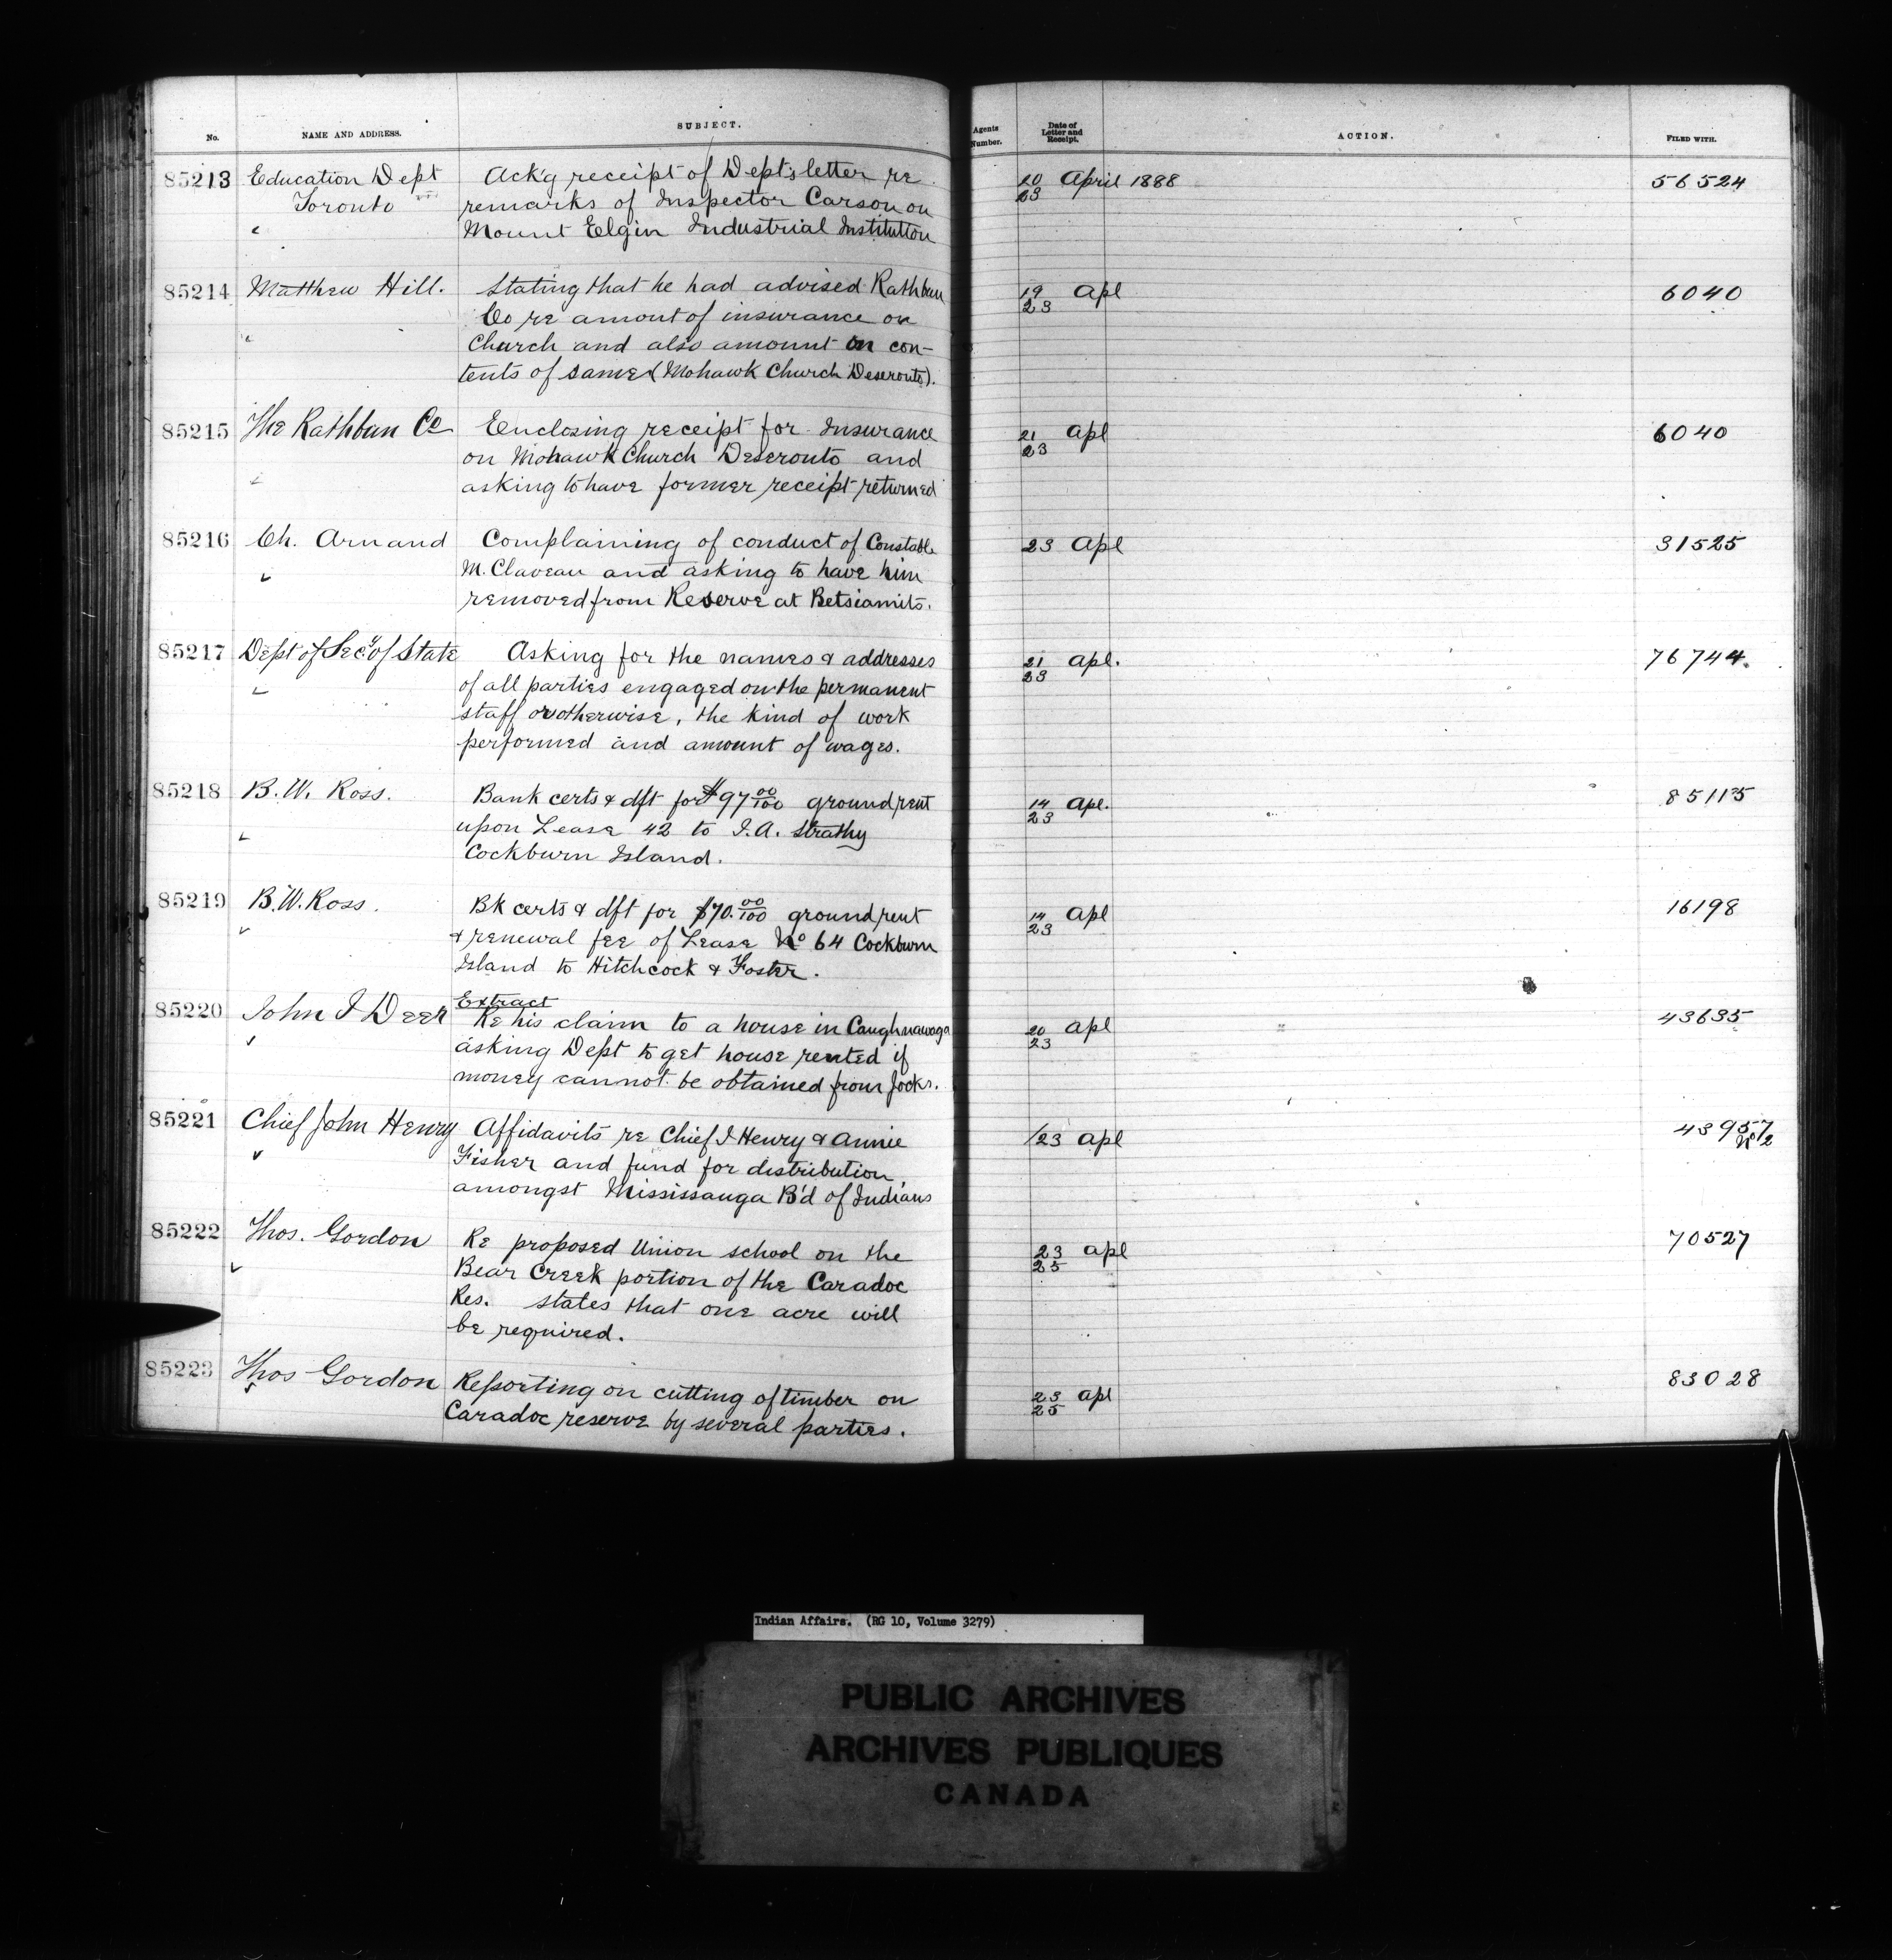 No. NAME AND ADDRESS. SUBJECT. Agents Number. Date of Letter and Receipt. ACTION. FILED WITH.
85213 Education Dept Ack'g receipt of Dept's letter re 20/23 April 1888 56524
Toronto remarks of Inspector Carson on
Mount Elgin Industrial Institution
85214 Matthew Hill. Stating that he had advised Rathbun 19/23 Apl 6040
Co re amount of insurance on
Church and also amount on con-
tents of same (Mohawk Church Deseronto).
85215 The Rathbun Co Enclosing receipt for Insurance 21/23 Apl 6040
on Mohawk Church Deseronto and
asking to have former receipt returned
85216 Ch. Arnand Complaining of conduct of Constable 23 Apl 31525
M. Claveau and asking to have him
removed from Reserve at Betsiamits.
85217 Dept of Secy of State Asking for the names & addresses 21/23 Apl. 76744.
of all parties engaged on the permanent
staff or otherwise, the kind of work
performed and amount of wages.
85218 B. W. Ross. Bank certs & dft for $97 00/100 ground rent 14/23 Apl. 85115
upon Lease 42 to J. A. Strathy
Cockburn Island.
85219 B. W. Ross. Bk certs & dft for $70. 00/100 ground rent 14/23 Apl 16198
& renewal fee of Lease No 64 Cockburn
Island to Hitchcock & Foster.
Extract
85220 John J Deer Re his claim to a house in Caughnawaga 20/23 Apl 43635
asking Dept to get house rented if
money cannot be obtained from Jocks.
85221 Chief John Henry Affidavits re Chief J Henry & Annie /23 Apl 43957
Fisher and fund for distribution No 2
amongst Mississauga B'd of Indians
85222 Thos. Gordon Re proposed Union school on the 23/25 Apl 70527
Bear Creek portion of the Caradoc
Res. states that one acre will
be required.
85223 Thos Gordon Reporting on cutting of timber on 23/25 Apl 83028
Caradoc reserve by several parties.
Indian Affairs. (RG 10, Volume 3279)
PUBLIC ARCHIVES
ARCHIVES PUBLIQUES
CANADA